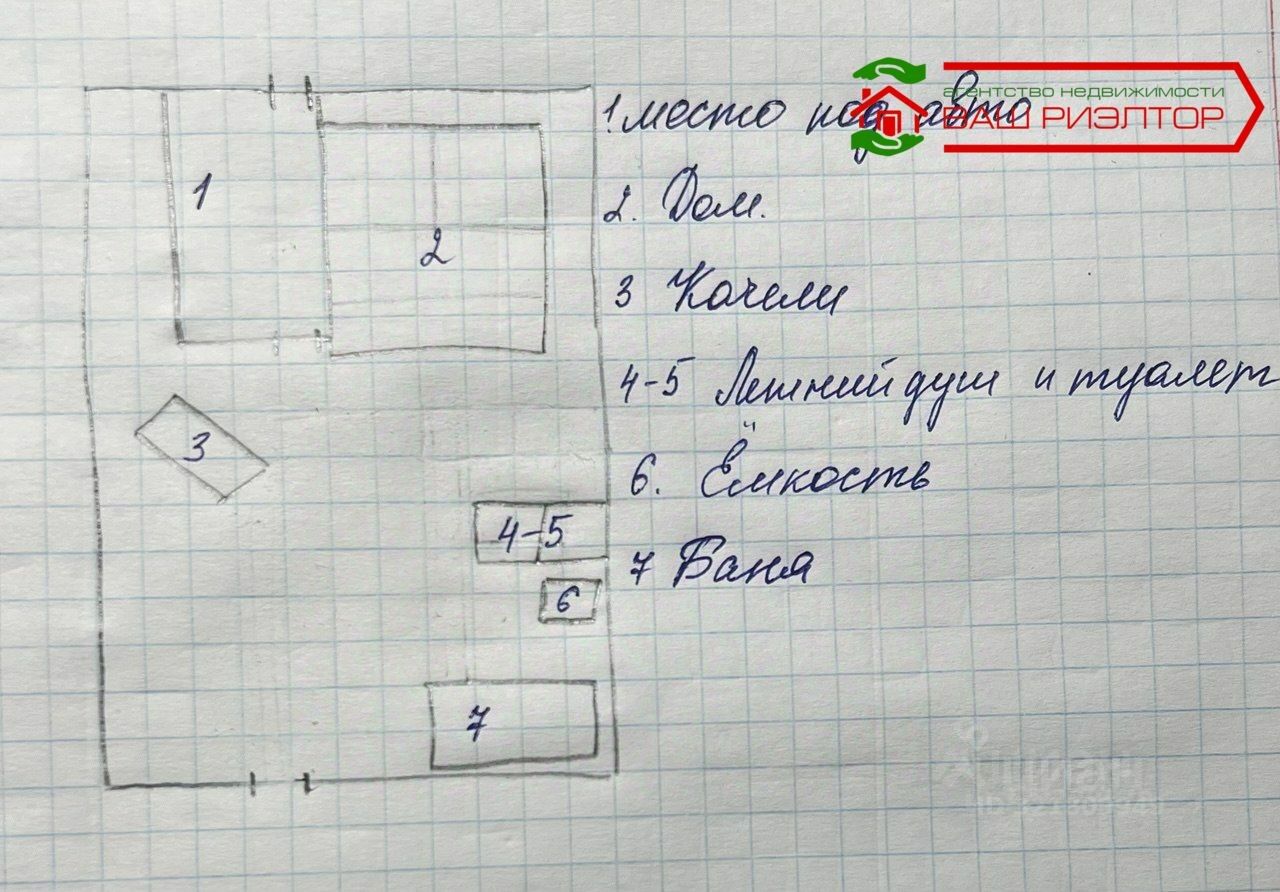 агентство недвижимости
ВАШ РИЭЛТОР
1. место под авто
2. Дом.
3 Качели
4-5 Летний душ и туалет
6. Ёмкость
7 Баня
1
2
3
4-5
6
7